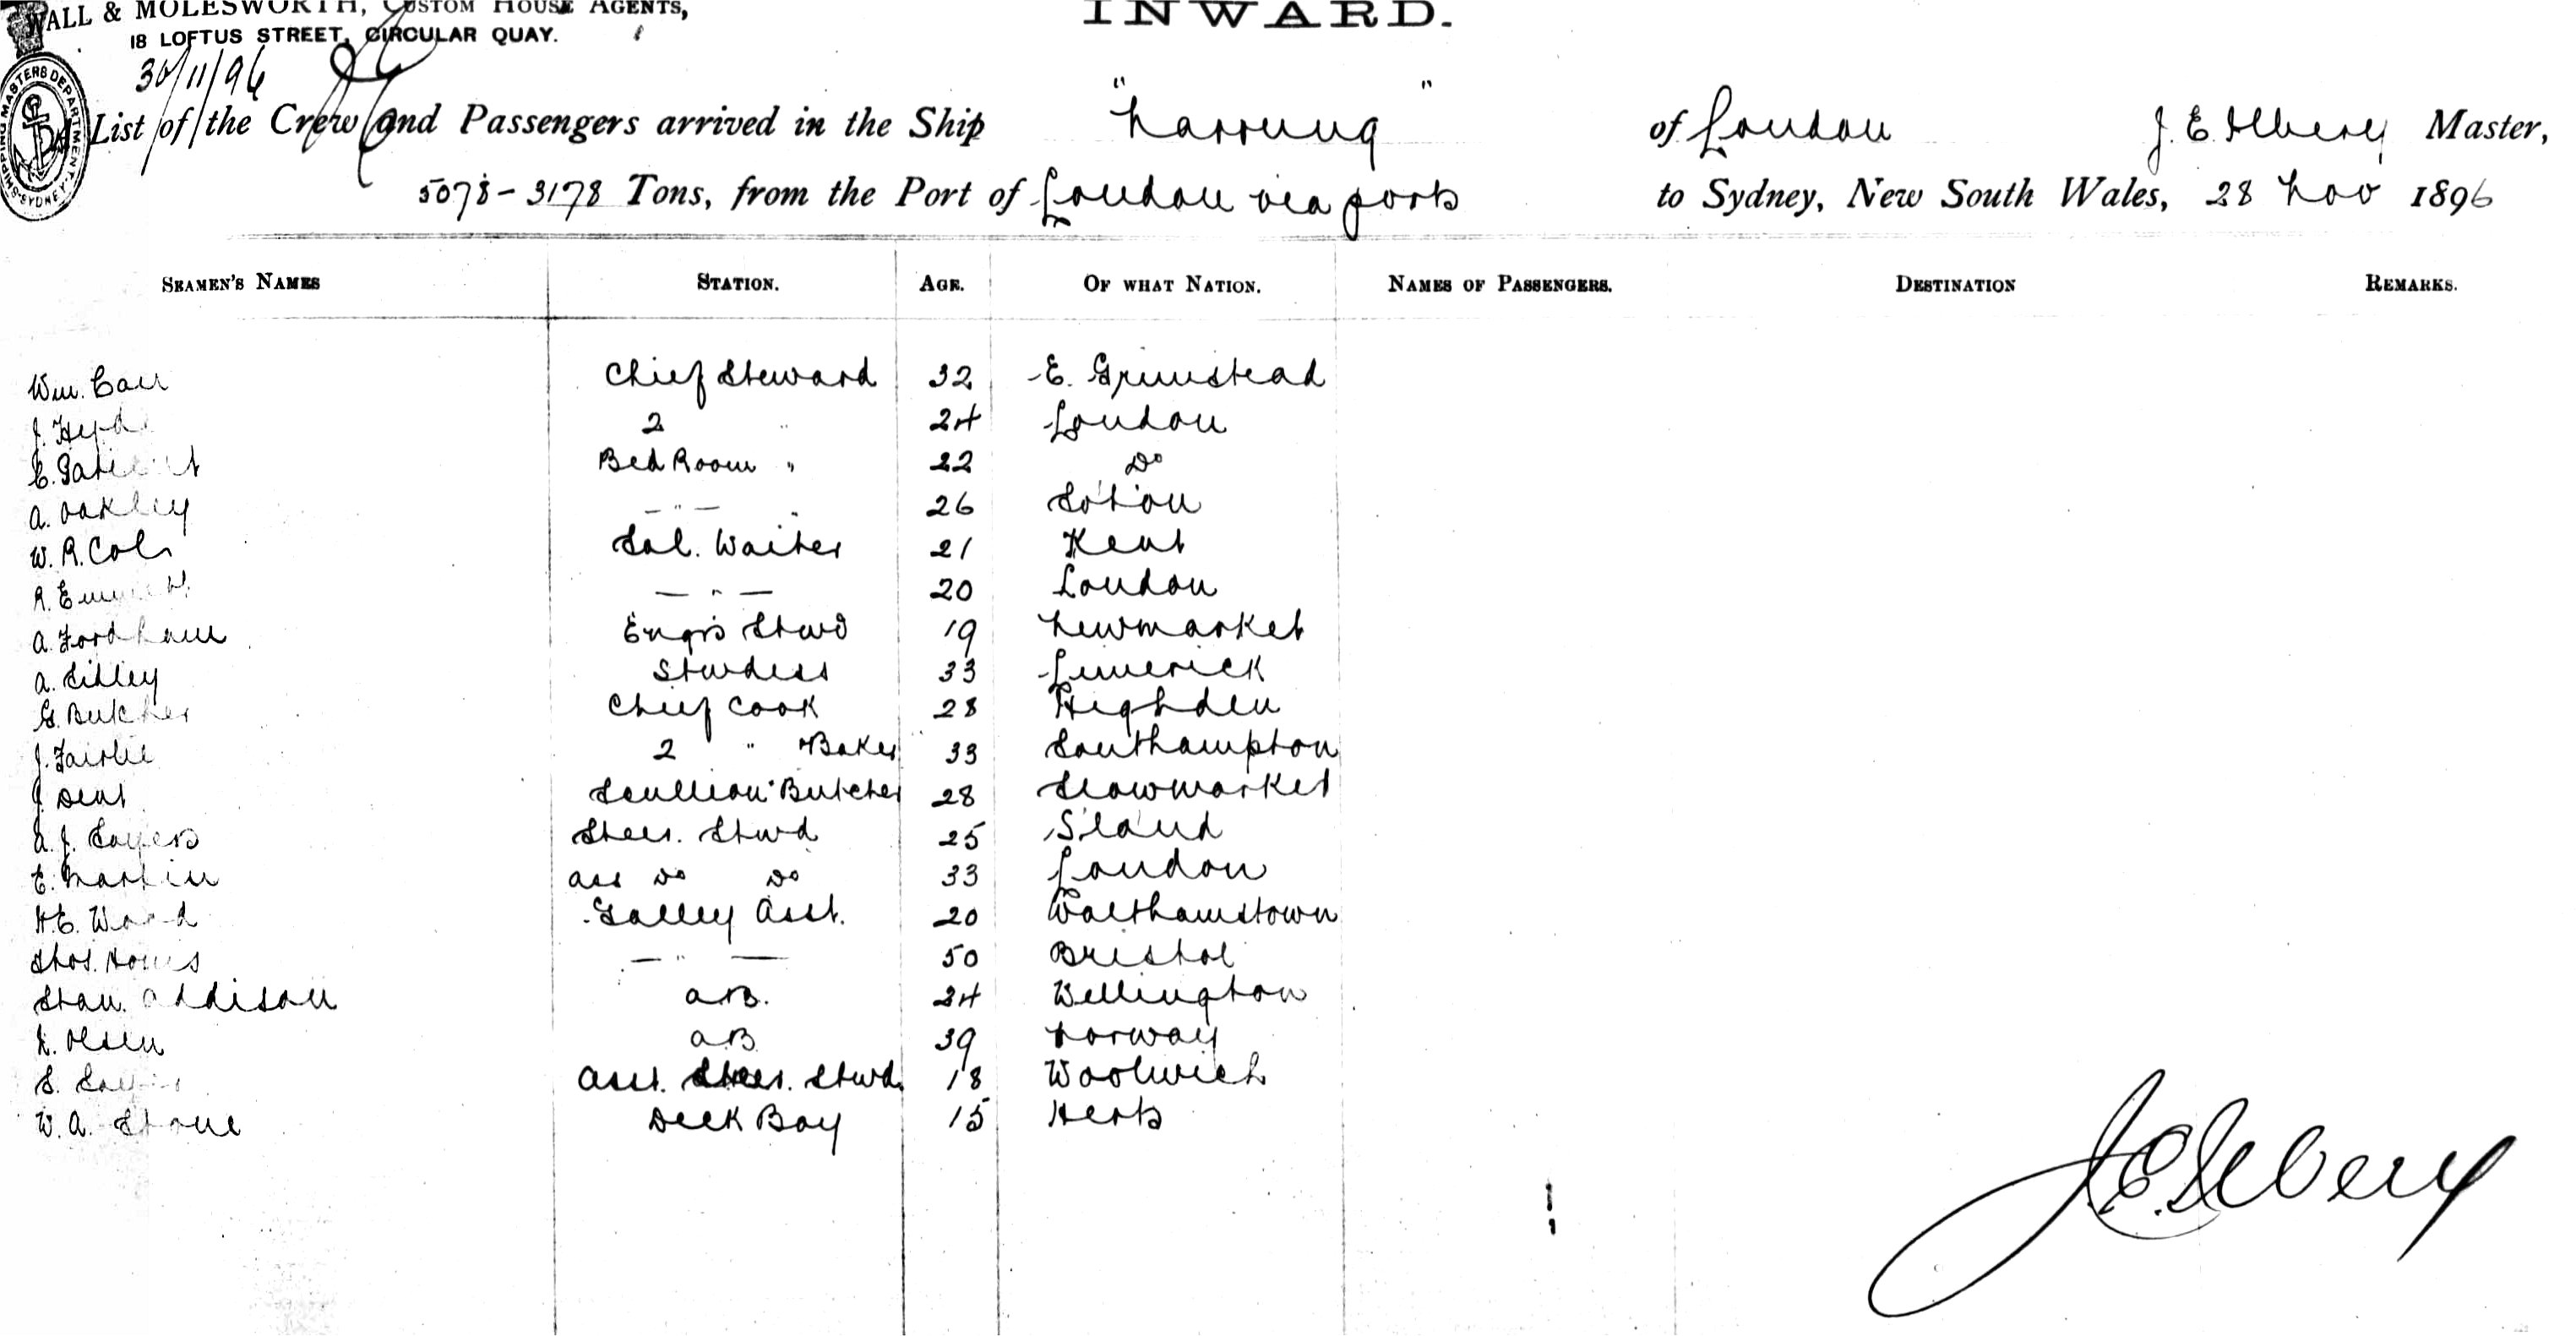 WALL & MOLESWORTH, CUSTOM HOUSE AGENTS,
18 LOFTUS STREET, CIRCULAR QUAY.
INWARD.
30/11/96
SHIPPING MASTERS DEPARTMENT SYDNEY
A List of the Crew and Passengers arrived in the Ship "Narrung" of London J. E. Ilbery Master,
5078 - 3178 Tons, from the Port of London via ports to Sydney, New South Wales, 28 Nov 1896
SEAMEN'S NAMES STATION. AGE. OF WHAT NATION. NAMES OF PASSENGERS. DESTINATION REMARKS.
Wm. Carr Chief Steward 32 E. Grinstead
J. Hyde 2 " 24 London
E. Bed Room " 22 Do
A. Oakley — " — " 26 So'ton
W. R. Cole Sal. Waiter 21 Kent
R. Emmett — " — 20 London
A. Fordham Engrs Stwd 19 Newmarket
A. Sidley Stwdess 33 Limerick
G. Butcher Chief Cook 28 Highden
J. Fairlie 2 " + Baker 33 Southampton
J. Dent Scullion + Butcher 28 Stowmarket
A. J. Sayers Steer. Stwd 25 S'land
E. Martin Ass Do Do 33 London
H. E. Wood Galley Asst. 20 Walthamstown
Thos. — " — 50 Bristol
Stan. Addison A.B. 24 Wellington
Olsen A.B. 39 Norway
S. Asst. Steer. Stwd. 18 Woolwich
W. A. Stone Deck Boy 15 Herts
J. E. Ilbery